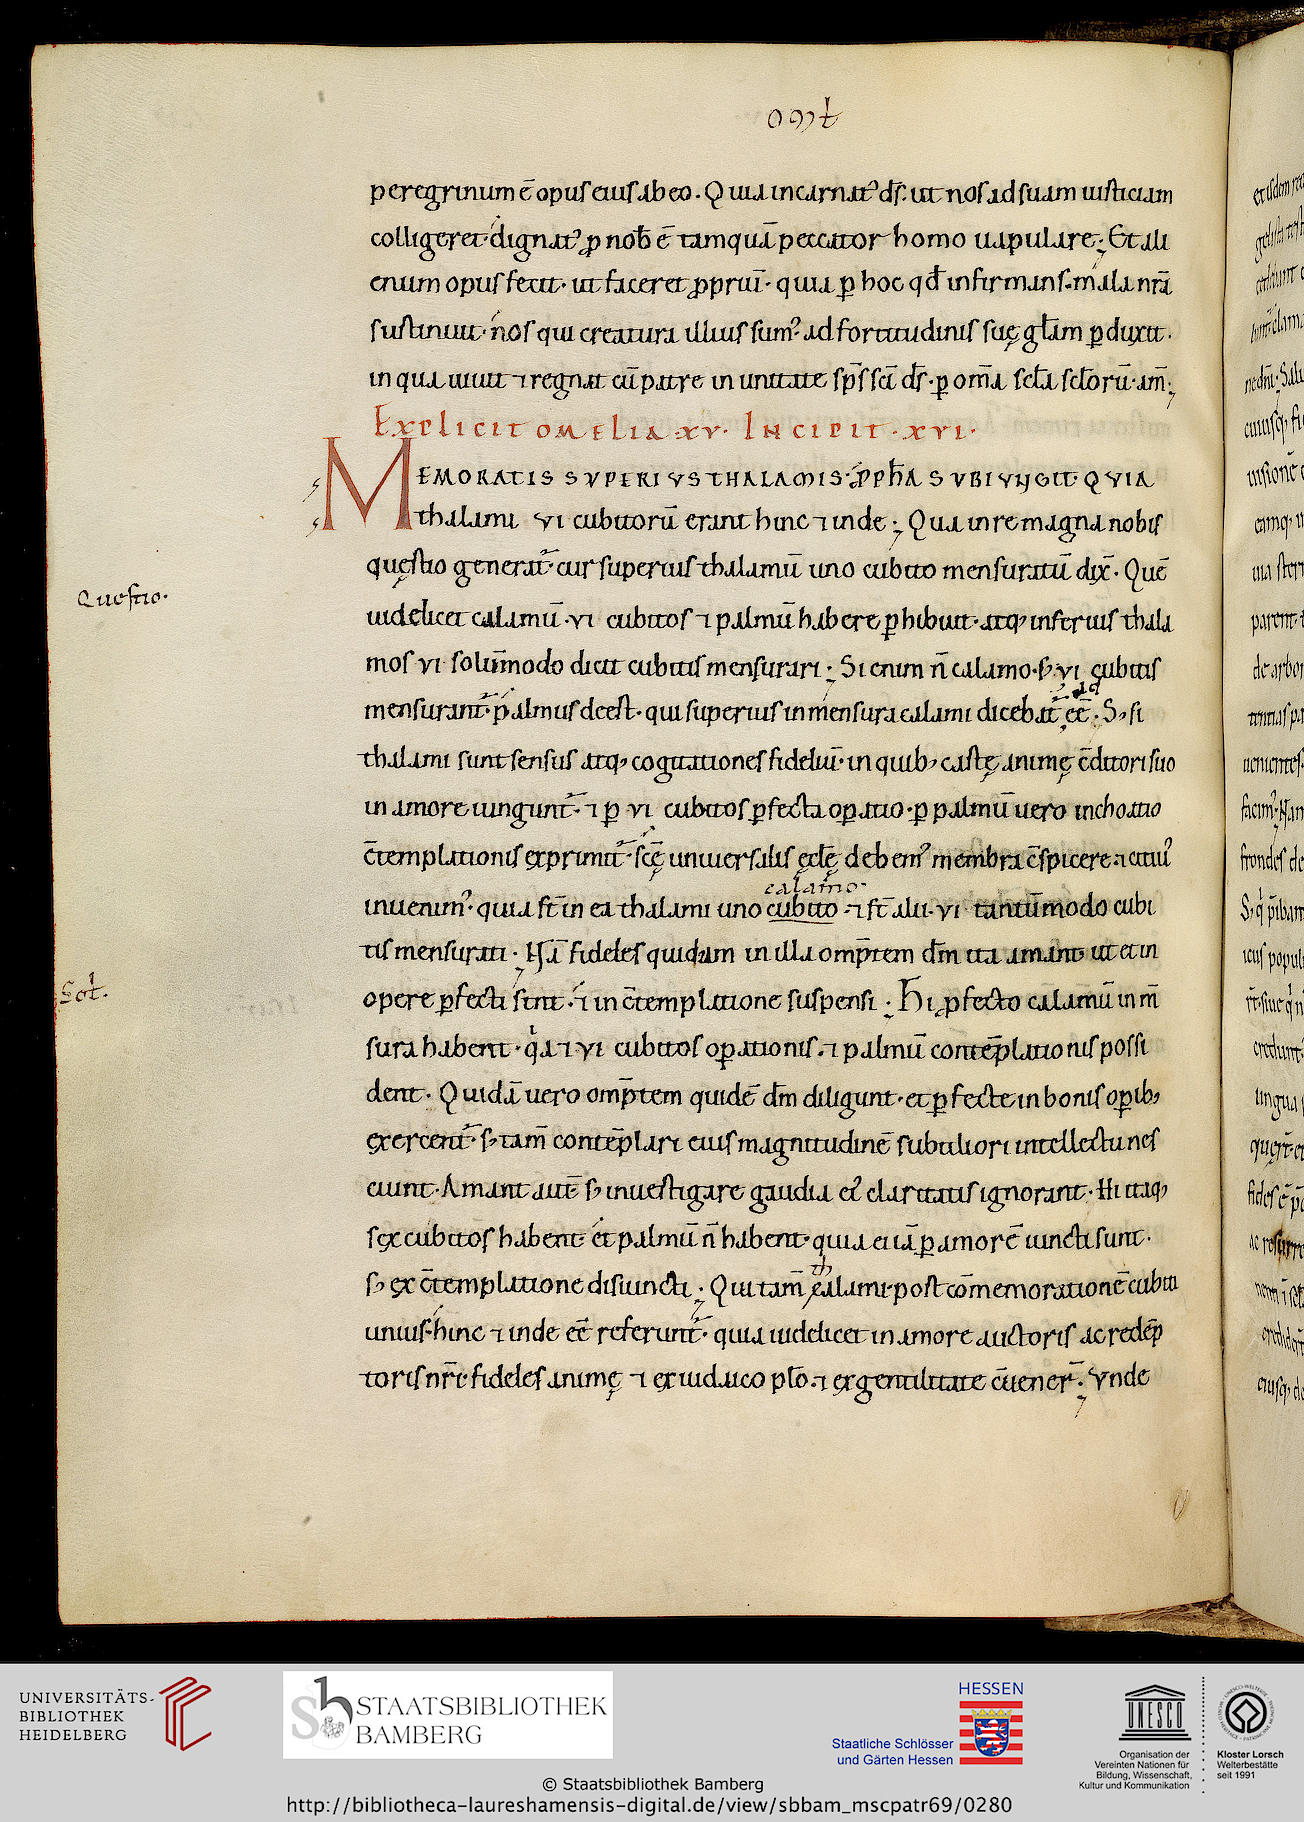 peregrinum ē opus eius ab eo. Quia incarnat᾽ d̄s. ut nos ad suam iusticiam
colligeret. dignat᾽ ꝓ nob̄ ē tamquā peccator homo uapulare; Et ali
enum opus fecit. ut faceret ꝓpriū. quia ꝑ hoc qd̄ infirmans. mala nr̄a
sustinuit. nos qui creatura illius sum᾽ ad fortitudinis suę gl̄am ꝑduxit.
in qua uiuit ⁊ regnat cū patre in unitate sp̄s sc̄i d̄s. ꝑ om̄a scl̄a scl̄orū. am̄;
Explicit omelia .xv. Incipit .xvi.
MEMORATIS SVPERIVS THALAMIS. ꝓph̄A SVBIVNGIT. QVIA
thalami vi cubitorū erant hinc ⁊ inde; Qua in re magna nobis
Questio.
quęstio generat᷑. cur superius thalamū uno cubito mensuratū dix̄. Quē
uidelicet calamū .vi cubitos ⁊ palmū habere ꝑhibuit. atq; inferius thala
mos vi solūmodo dicit cubitis mensurari; Si enim n̄ calamo. s; vi cubitis
mensurant᷑. palmus deest. qui superius in mensura calami dicebat᷑ ee̅. S; si
thalami sunt sensus atq; cogitationes fideliū. in quib; castę animę c̄ditori suo
in amore iungunt᷑. ⁊ ꝑ vi cubitos ꝑfecta oꝑatio. ꝑ palmū uero inchoatio
c̄templationis exprimit᷑. sc̄ę uniuersalis ęcl̄ę debem᾽ membra c̄spicere. ⁊ citiu᾽
calamo.
inuenim᾽. quia st̄ in ea thalami uno cubito. ⁊ st̄ alii. vi tantūmodo cubi
tis mensurati. Nā fideles quidam in illa omp̄tem dm̄ ita amant. ut et in
Sol̄.
opere ꝑfecti sint. ⁊ in c̄templatione suspensi; Hi ꝓfecto calamū in m̄
sura habent. qa ⁊ vi cubitos oꝑationis. ⁊ palmū contēplationis possi
dent. Quidā uero omp̄tem quidē dm̄ diligunt. et ꝑfecte in bonis oꝑib;
exercent᷑. s; tam̄ contēplari eius magnitudinē subtiliori intellectu nes
ciunt. Amant autē s; inuestigare gaudia ei᾽ claritatis ignorant. Hi itaq;
sex cubitos habent et palmū n̄ habent. quia ei iā ꝑ amorē iuncti sunt.
s; ex c̄templatione disiuncti; Qui tam̄ thalami. post cōmemorationē cubiti
unius. hinc ⁊ inde ee̅ referunt᷑. quia uidelicet in amore auctoris ac redēp
toris nr̄i. fideles animę ⁊ ex iudaico pl̄o. ⁊ ex gentilitate c̄uener̄; Vnde
UNIVERSITÄTS-
BIBLIOTHEK
HEIDELBERG
STAATSBIBLIOTHEK
BAMBERG
HESSEN
Staatliche Schlösser
und Gärten Hessen
UNESCO
Organisation der
Vereinten Nationen für
Bildung, Wissenschaft,
Kultur und Kommunikation
Kloster Lorsch
Welterbestätte
seit 1991
© Staatsbibliothek Bamberg
http://bibliotheca-laureshamensis-digital.de/view/sbbam_mscpatr69/0280